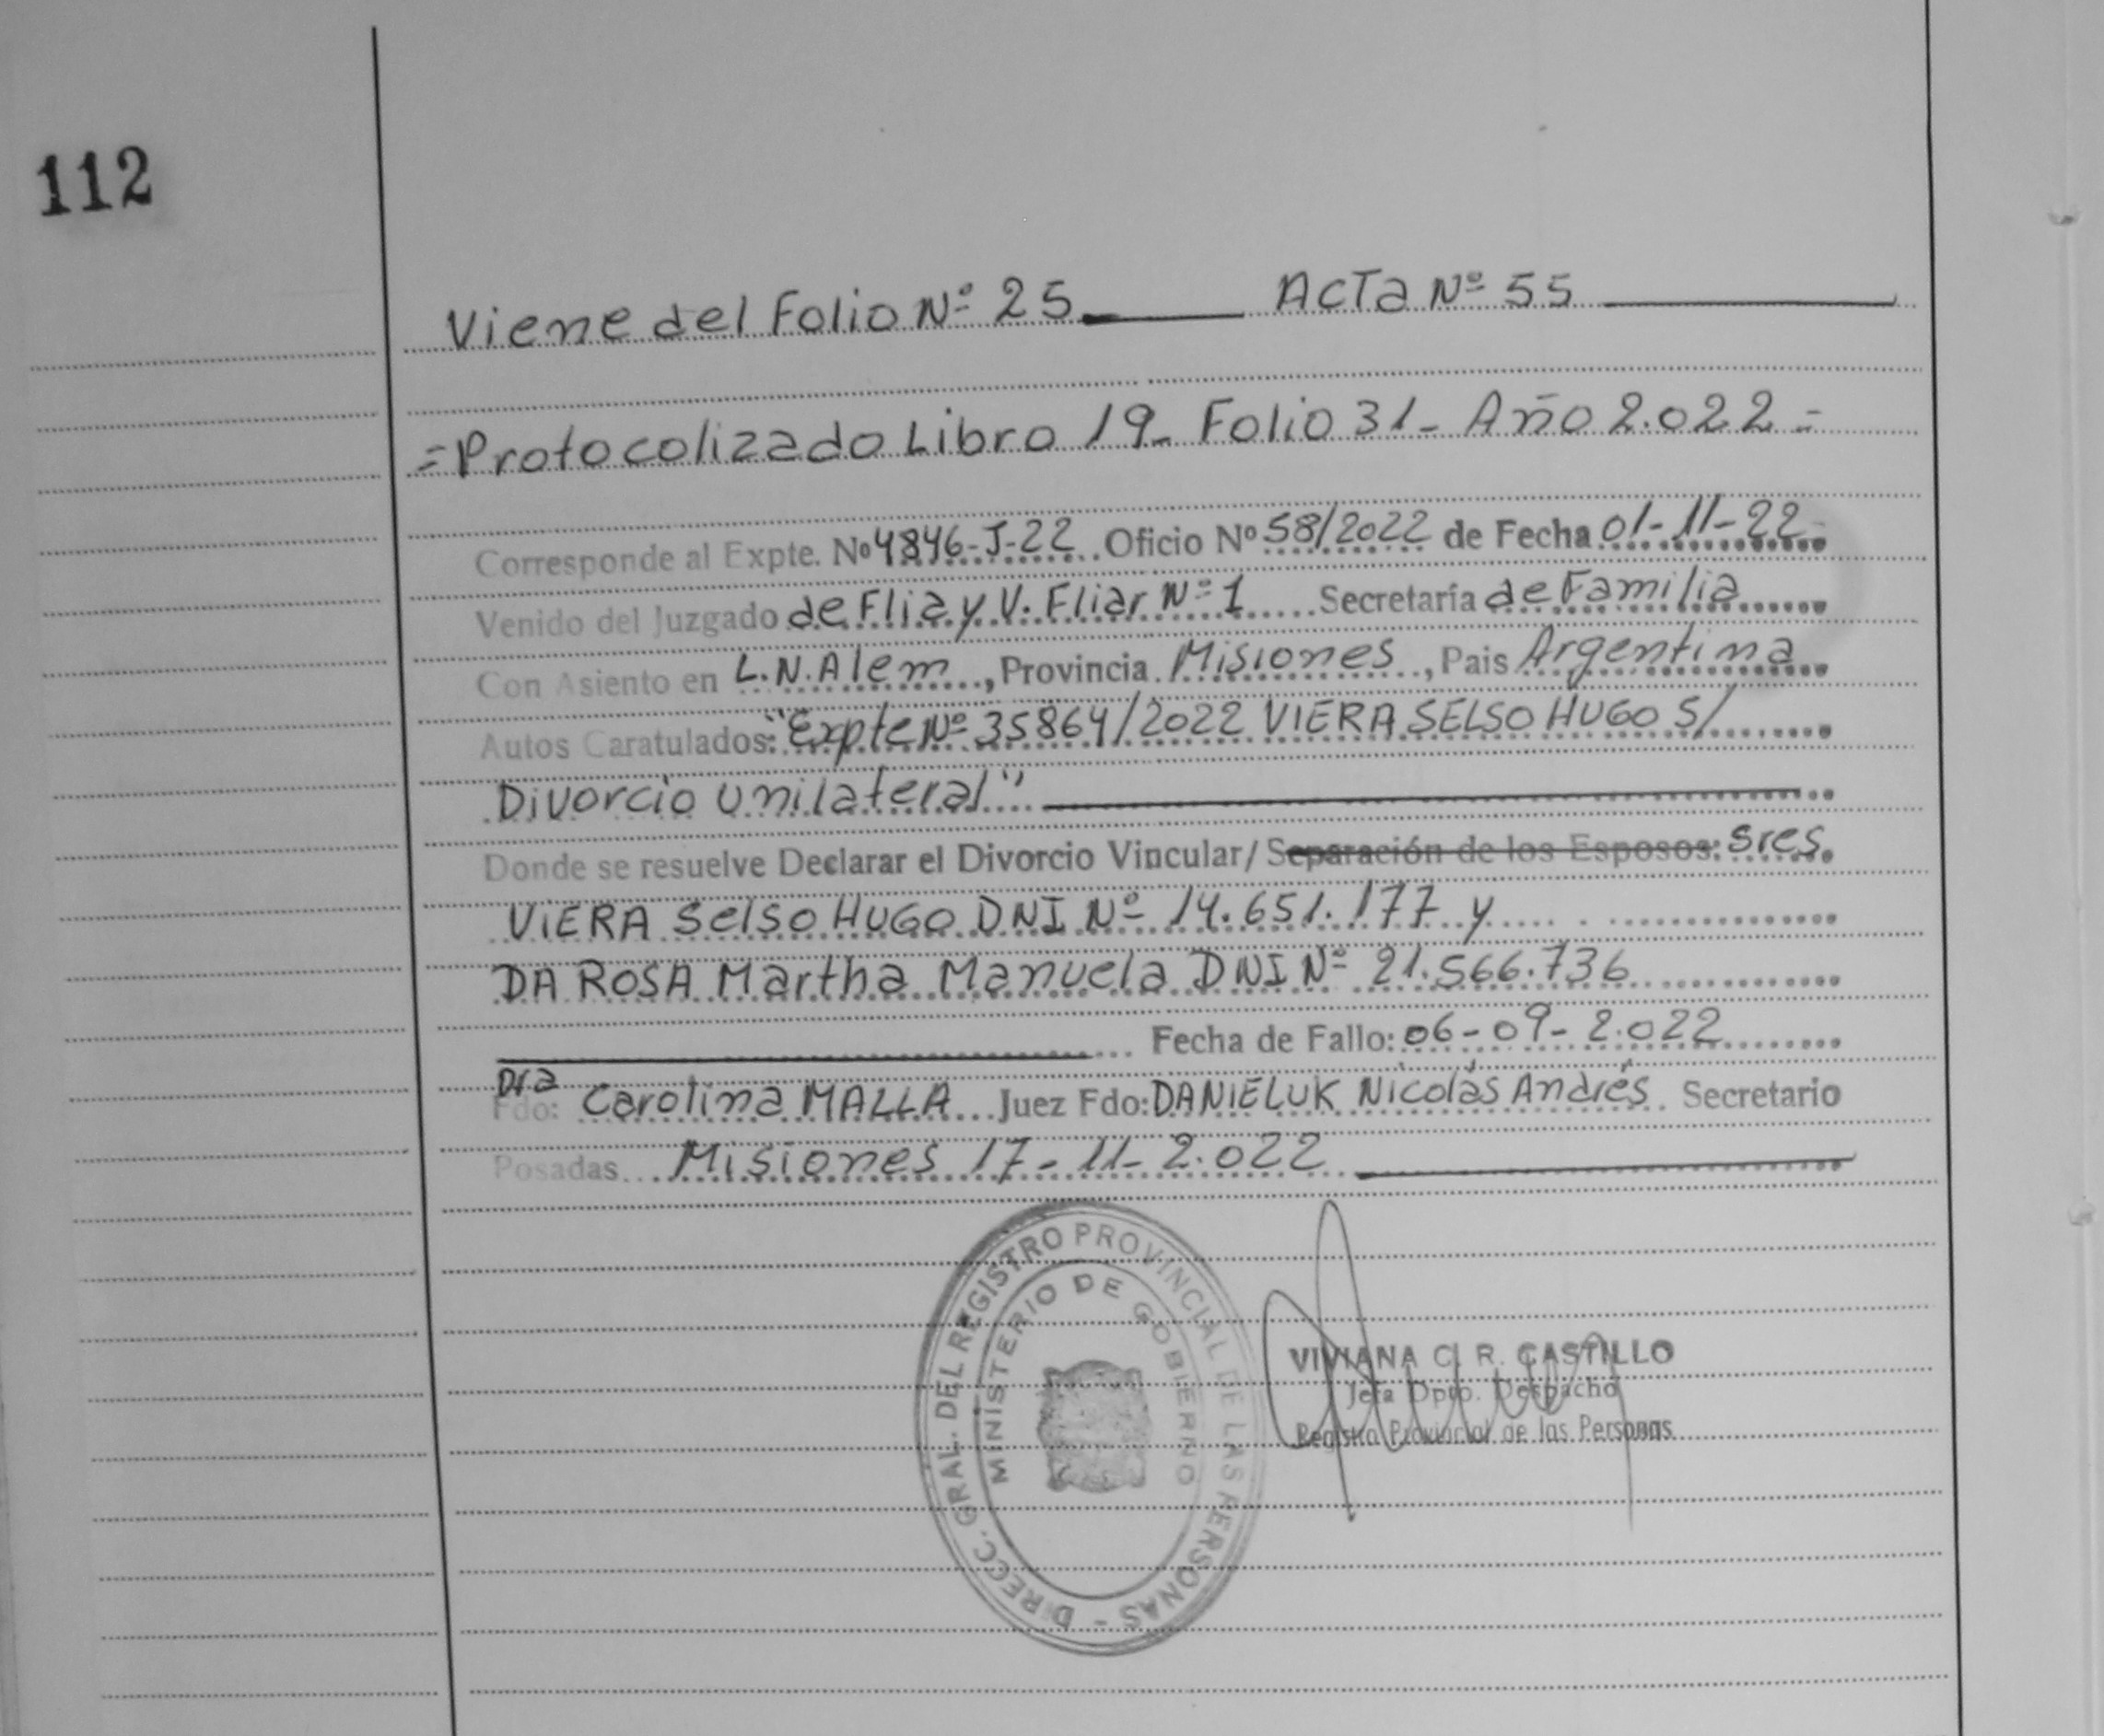 112
Viene del Folio Nº 25 Acta Nº 55
=Protocolizado Libro 19- Folio 31- Año 2.022=
Corresponde al Expte. Nº 4846-J-22 Oficio Nº 58/2022 de Fecha 01-11-22
Venido del Juzgado de Flia y V. Fliar Nº 1 Secretaría de Familia
Con Asiento en L.N. Alem, Provincia Misiones, Pais Argentina
Autos Caratulados: "Expte Nº 35864/2022 VIERA SELSO HUGO S/
Divorcio Unilateral"
Donde se resuelve Declarar el Divorcio Vincular/ Separación de los Esposos: Sres.
VIERA Selso HUGO DNI Nº 14.651.177 y
DA ROSA Martha Manuela DNI Nº 21.566.736
Fecha de Fallo: 06-09-2.022
Dra
Fdo: Carolina MALLA Juez Fdo: DANIELUK Nicolás Andrés Secretario
Posadas Misiones 17-11-2.022
DIRECC. GRAL. DEL REGISTRO PROVINCIAL DE LAS PERSONAS -
MINISTERIO DE GOBIERNO
VIVIANA C. R. CASTILLO
Jefa Dpto. Despacho
Registro Provincial de las Personas